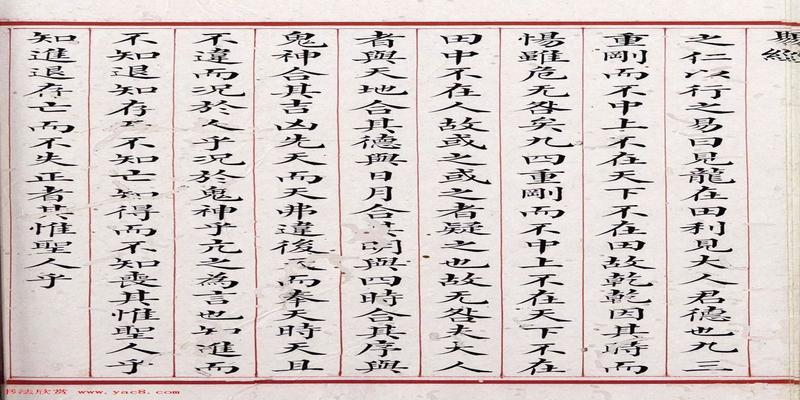 之仁以行之易曰見龍在田利見大人君德也九三
重剛而不中上不在天下不在田故乾乾因其時而
惕雖危无咎矣九四重剛而不中上不在天下不在
田中不在人故或之或之者疑之也故无咎夫大人
者與天地合其德與日月合其明與四時合其序與
鬼神合其吉凶先天而天弗違後而奉天時天且
不違而況於人乎況於鬼神乎亢之為言也知進而
不知退知存不知亡知得而不知喪其惟聖人乎
知進退存亡而不失正者其惟聖人乎
书法欣赏 www.yac8.com